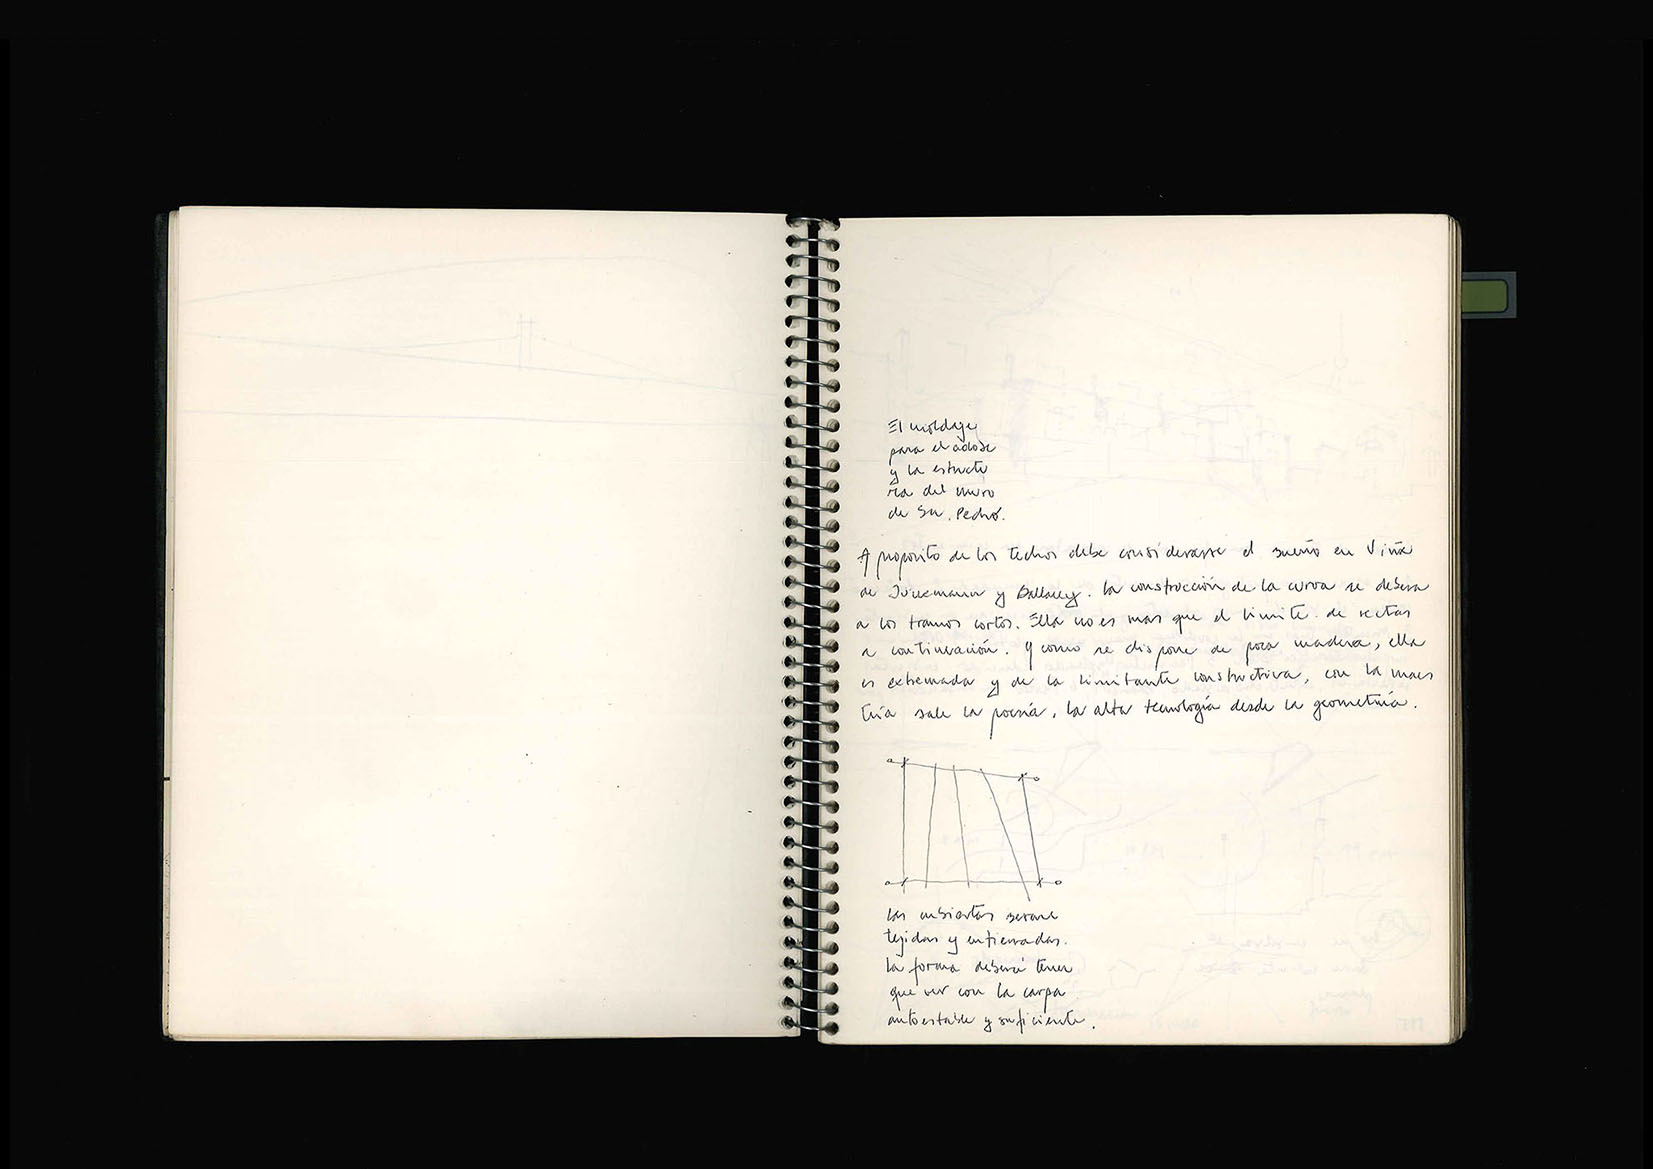 El moldaje
para el adobe
y la estructu
ra del muro
de San Pedro.
A proposito de los techos debe considerarse el sueño en Viña
de y . La construcción de la curva se debera
a los tramos cortos. Ella no es mas que el limite de rectas
a continuación. Y como se dispone de poca madera, ella
es extremada y de la limitante constructiva, con la maes
tria sale la poesía, la alta tecnología desde la geometría.
Las cubiertas serane
tejidas y enfierradas.
La forma deberá tener
que ver con la carpa
autoestable y suficiente.